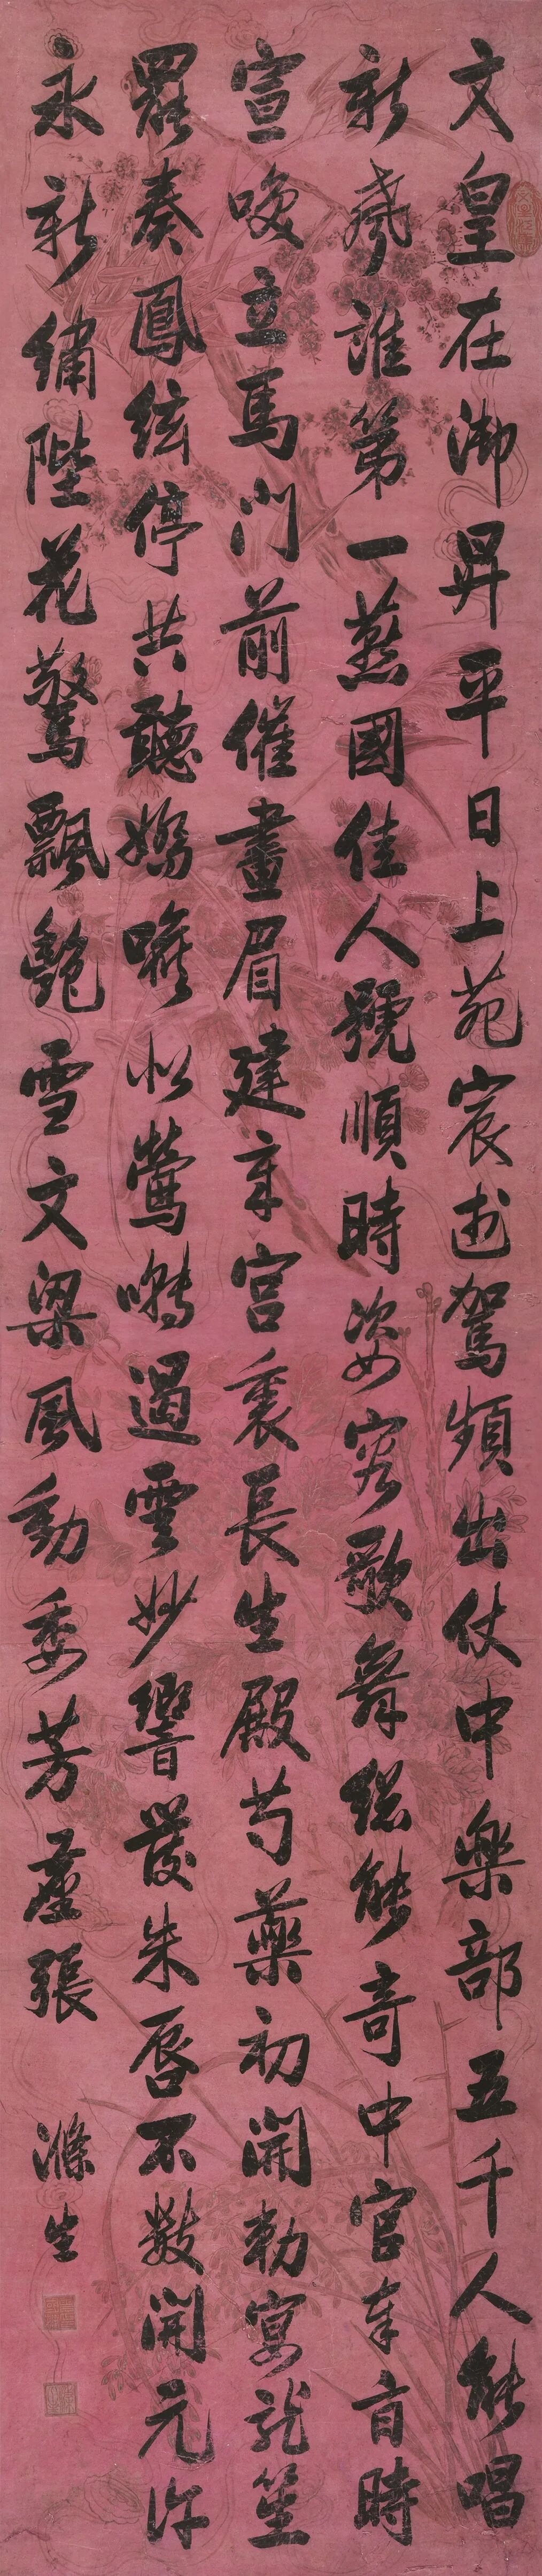 文皇在御昇平日上苑宸遊駕頻出仗中樂部五千人能唱
新聲誰第一燕國佳人號順時姿容歌舞總能奇中官奉旨時
宣喚立馬門前催畫眉建章宮裏長生殿芍藥初開勅宴龍笙
罷奏鳳絃停共聽嬌喉如鶯囀遏雲妙響發朱唇不數開元許
永新繡陛花驚飄艷雪文梁風動委芳塵張
滌生